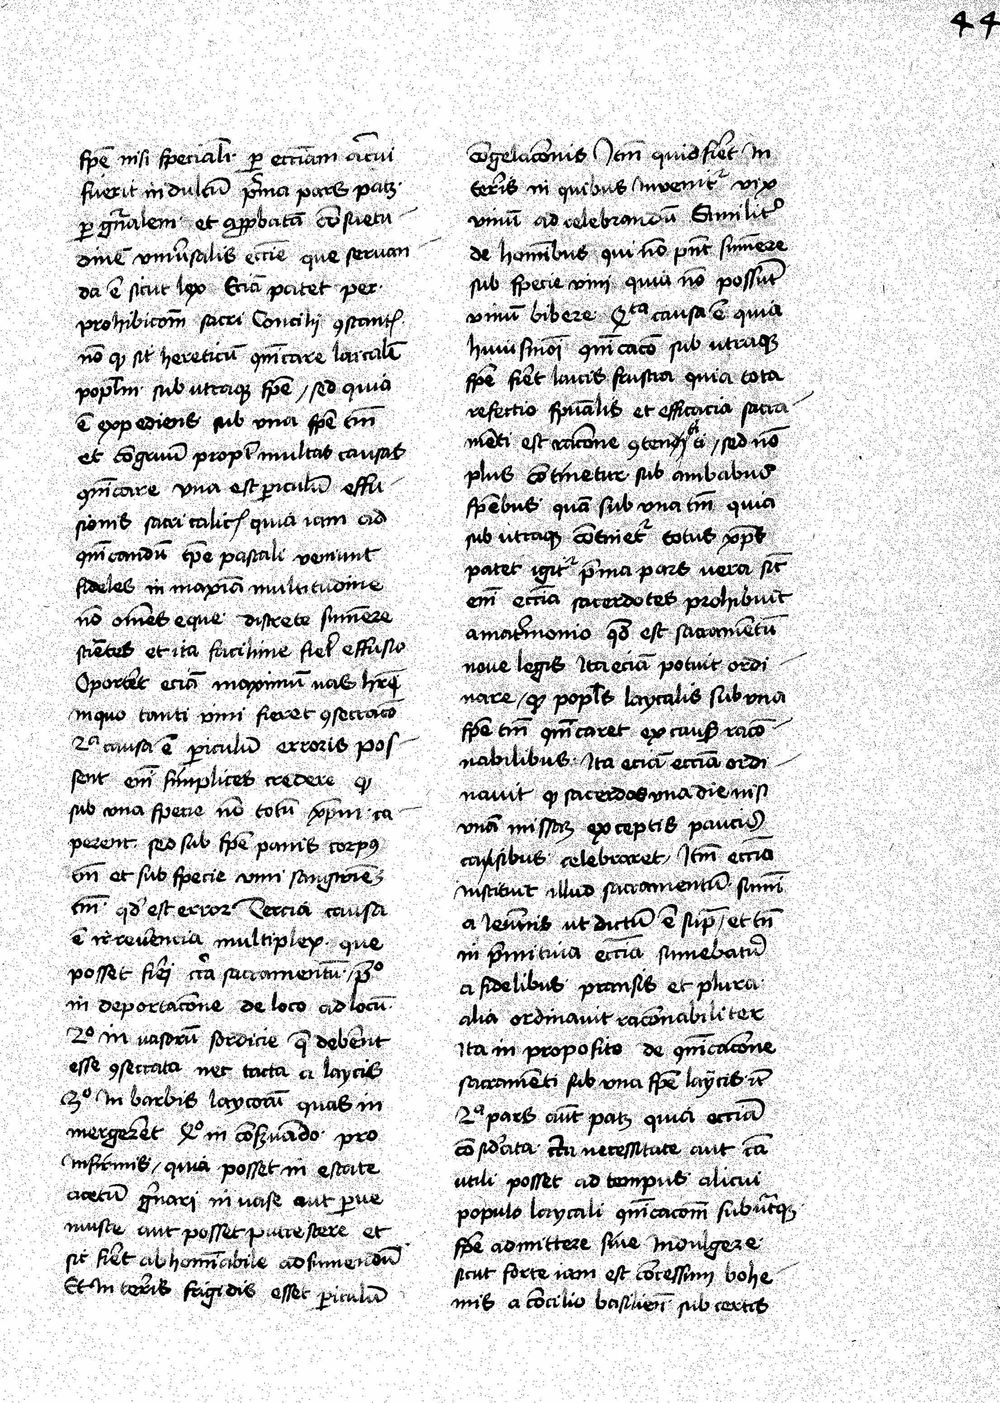 44
spē nisi speciali per ecciam alicui
fuerit indultū p̄ma pars patꝫ
per gn̄alem et app̄batā ꝯsuetu
dinē vniūsalis eccīe que seruan
da ē sicut lex Eciā patet per
prohibicom̄ sacri Concilij ꝯstanc̄
nō qꝫ sit hereticū ꝯm̄care laicalē
popl̄m sub utraqꝫ spē / sed quia
ē expediens sub vna spē tm̄
et cōgruū propt̄ multas causas
ꝯm̄care vna est piculū effu
sionis sacri calic̄ quia iam ad
ꝯm̄candū tp̄e pascali veniunt
fideles in maxīa multitudine
nō om̄es eque discrete sumere
scientes et ita facilime fieret effusio
Oporteret eciā maximū vas hr̄e
in quo tanti vini fieret ꝯsecracō
2ᵃ causa ē piculū erroris pos
sent em̄ simplices credere qꝫ
sub vna specie nō totū xp̄m ca
perent sed sub spē panis corpꝰ
tm̄ et sub specie vini sanguinē
tm̄ qd̄ est error Tercia causa
ē irreuencia multiplex que
posset fieri cc̄a sacramentū / p̄ᵒ
in deportacōne de loco ad locū
2ᵒ in vasorū sordicie q̄ debent
esse ꝯsecrata nec tacta a laycis
3ᵒ In barbis laycorū quas in
mergerent 4ᵒ in cōseruādo pro
infirmis / quia posset in estate
acetū gn̄ari in vase aut
aut posset putrescere et
sic fieret abhominabile ad sumendū
Et in terris frigidis esset piculū
Cōgelacionis Itm̄ quid fieret In
terris in quibus Inuenitr̄ vix
vinū ad celebrandū Similitr̄
de hominibus qui nō pn̄t sumere
sub specie vini quia nō possunt
vinū bibere 4ᵗᵃ causa ē quia
huiusmōi ꝯm̄cacō sub utraqꝫ
spē fieret laicis frustra quia tota
refectio sp̄ualis et efficacia sacra
menti est racōne ꝯtenti / sed nō
plus ꝯtinetur sub ambabus
spēbus quā sub vna tm̄ quia
sub utraqꝫ ꝯtinetr̄ totus xp̄s
patet igitr̄ p̄ma pars vera sic
em̄ eccīa sacerdotes prohibuit
a matrimonio qd̄ est sacramentū
noue legis Ita eciā potuit ordi
nare / qꝫ popl̄s laycalis sub vna
spē tm̄ ꝯm̄caret ex causis racō
nabilibus Ita eciā eccīa ordi
nauit qꝫ sacerdos vna die nisi
vnā missaꝫ exceptis paucis
casibus celebraret / Itm̄ eccīa
instituit illud sacramentū sumi
a ieiunis ut dictū ē sup̄ / et tn̄
in p̄mitiua eccīa sumebatur
a fidelibus pransis et plura
alia ordinauit racōnabiliter
Ita in proposito de ꝯm̄cacōne
sacramenti sub vna spē laycis
2ᵃ pars aūt patꝫ quia eccīa
cōsid'ata necessitate aut cā
utili posset ad tempus alicui
populo laycali ꝯm̄cacom̄ sub utraqꝫ
spē admittere siue Indulgere
sicut forte iam est cōcessum bohe
mis a cōcilio basilien̄ sub certis